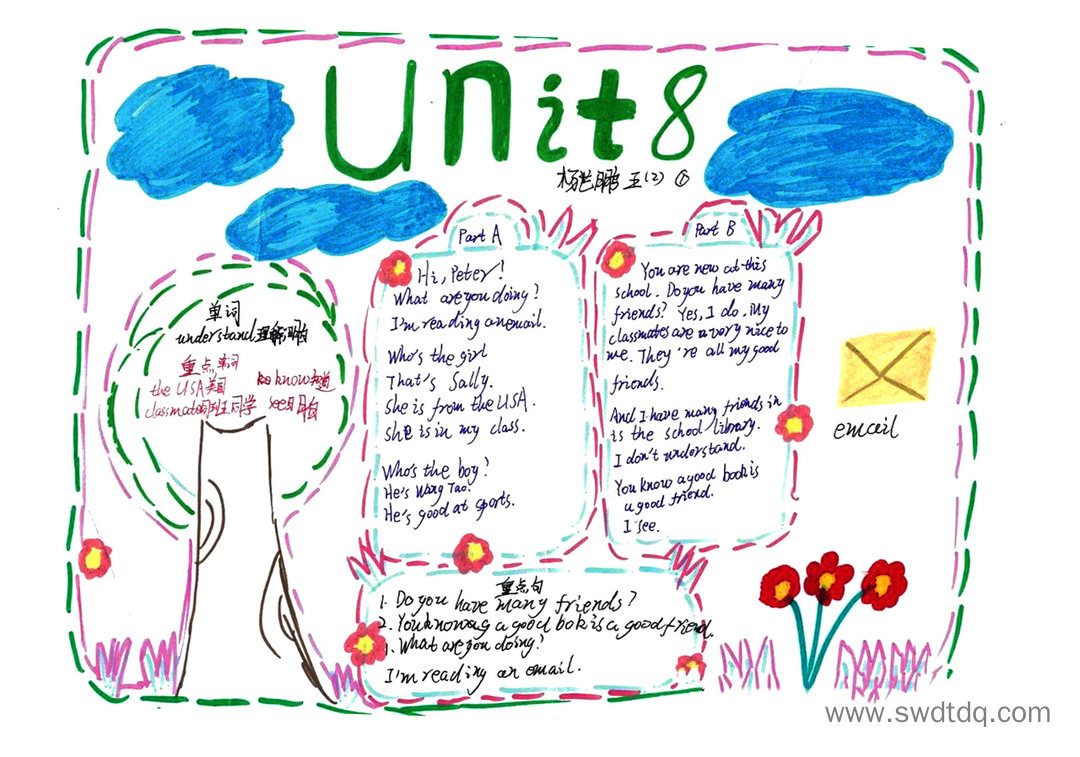 unit 8
杨 鹏 五(2) ①
单词
understand 理解 明白
重点单词
the USA美国 know知道
classmate同班同学 see明白
Part A
Hi, Peter!
What are you doing?
I'm reading an email.
Who's the girl
That's Sally.
she is from the USA.
she is in my class.
Who's the boy?
He's Wang Tao.
He's good at sports.
Part B
You are new at this
school. Do you have many
friends? Yes, I do. My
classmates are a very nice to
me. They're all my good
friends.
And I have many friends in
is the school library.
I don't understand.
You know a good book is
a good friend.
I see.
email
重点句
1. Do you have many friends?
2. You know a good book is a good friend.
1. What are you doing?
I'm reading an email.
www.swdtdq.com